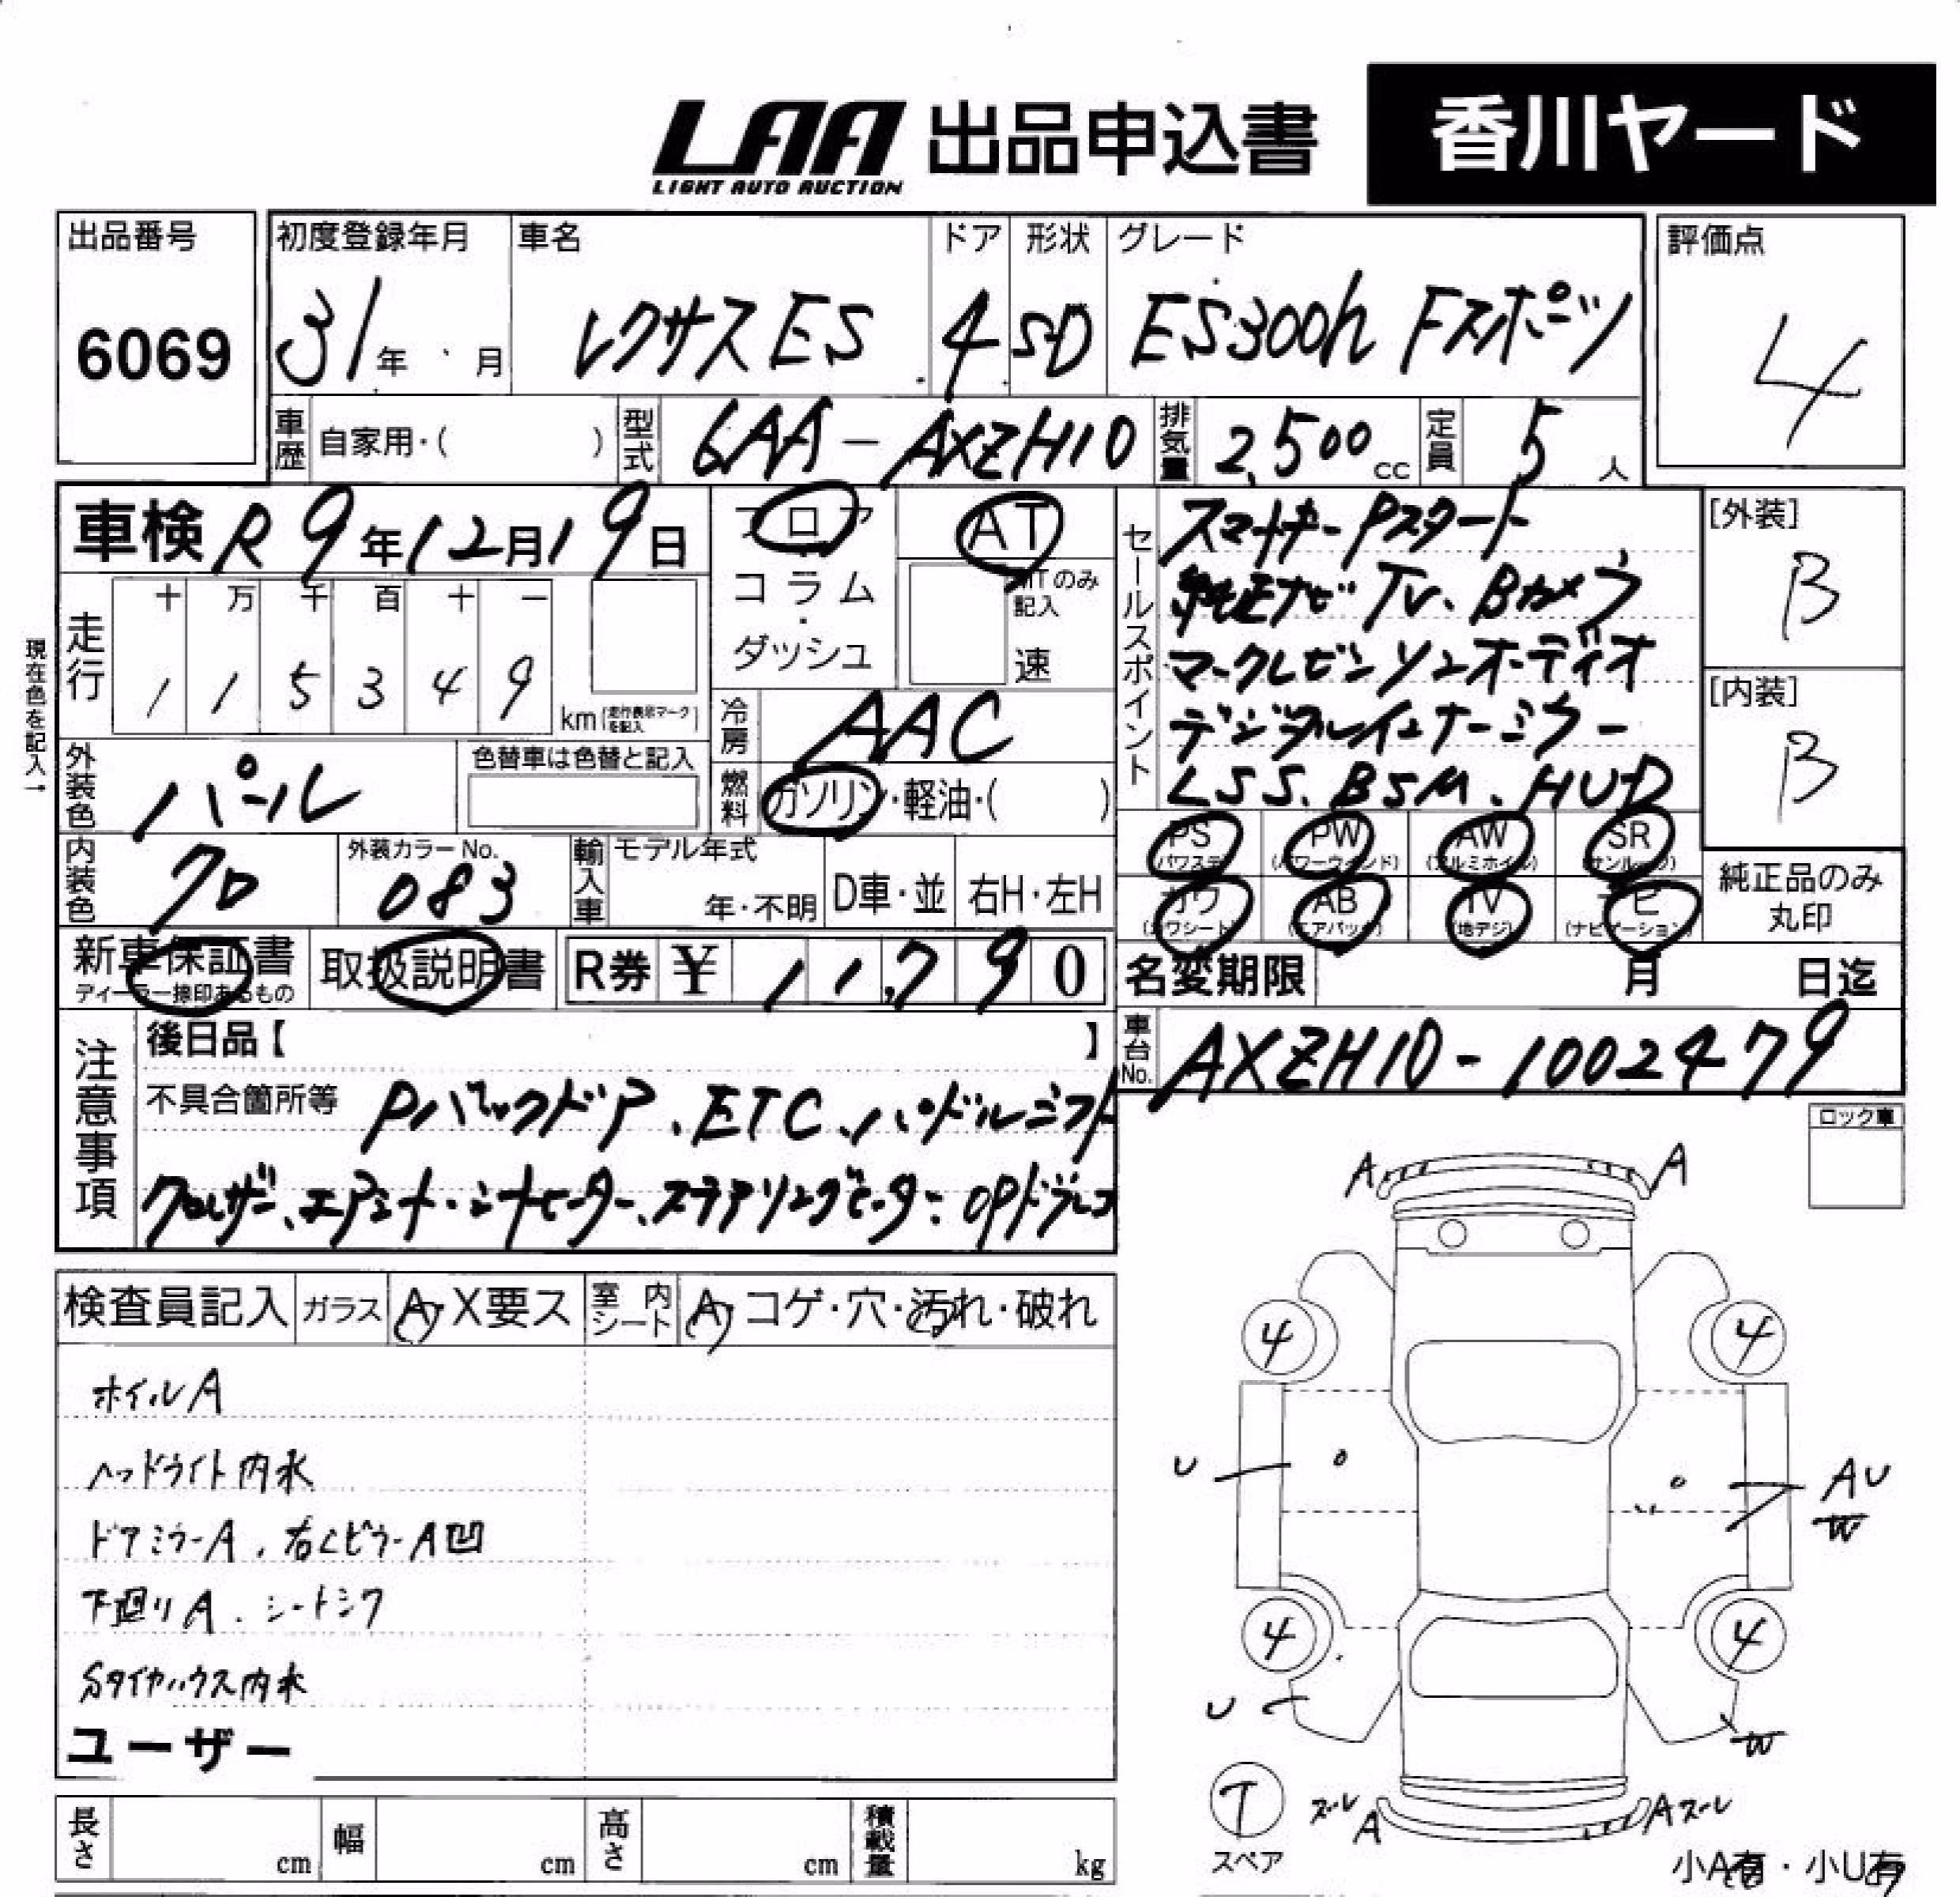 LAA 出品申込書 香川ヤード
LIGHT AUTO AUCTION
出品番号 初度登録年月 車名 ドア 形状 グレード 評価点
6069 31年 月 レクサスES 4 SD ES300h Fスポーツ 4
車歴 自家用・( ) 型式 6AA-AXZH10 排気量 2,500cc 定員 5人
車検 R9年12月19日 フロア AT
コラム・ MTのみ記入
ダッシュ 速
現在色を記入→
走行 十 万 千 百 十 一
1 1 5 3 4 9 km(走行表示マークを記入)
冷房 AAC
外装色 パール 色替車は色替と記入
燃料 ガソリン・軽油・( )
内装色 クロ 外装カラーNo. 083 輸入車 モデル年式 年・不明 D車・並 右H・左H
セールスポイント スマートキーPスタート
純正ナビTV、Bカメラ
マークレビンソンオーディオ
デジタルインナーミラー
LSS、BSM、HUD
[外装] B
[内装] B
PS(パワステ) PW(パワーウィンド) AW(アルミホイル) SR(サンルーフ)
カワ(カワシート) AB(エアバッグ) TV(地デジ) ナビ(ナビゲーション)
純正品のみ丸印
新車保証書 取扱説明書 R券 ¥ 11,790
ディーラー捺印あるもの
名変期限 月 日迄
車台No. AXZH10-1002479
注意事項 後日品【 】
不具合箇所等 Pバックドア、ETC、ハンドルシフト
クロレザー、エアシート・シートヒーター、ステアリングヒーター:OPドラレコ
ロック車
検査員記入 ガラス A・X要ス 室内シート A・コゲ・穴・汚れ・破れ
ホイルA
ヘッドライト内水
ドアミラーA、右CピラーA凹
下廻りA、シートシワ
Sタイヤハウス内水
ユーザー
A A
4 4
U AU
W
4 4
U W
T スペア
ズレ A Aズレ
小A有・小U有
長さ cm 幅 cm 高さ cm 積載量 kg